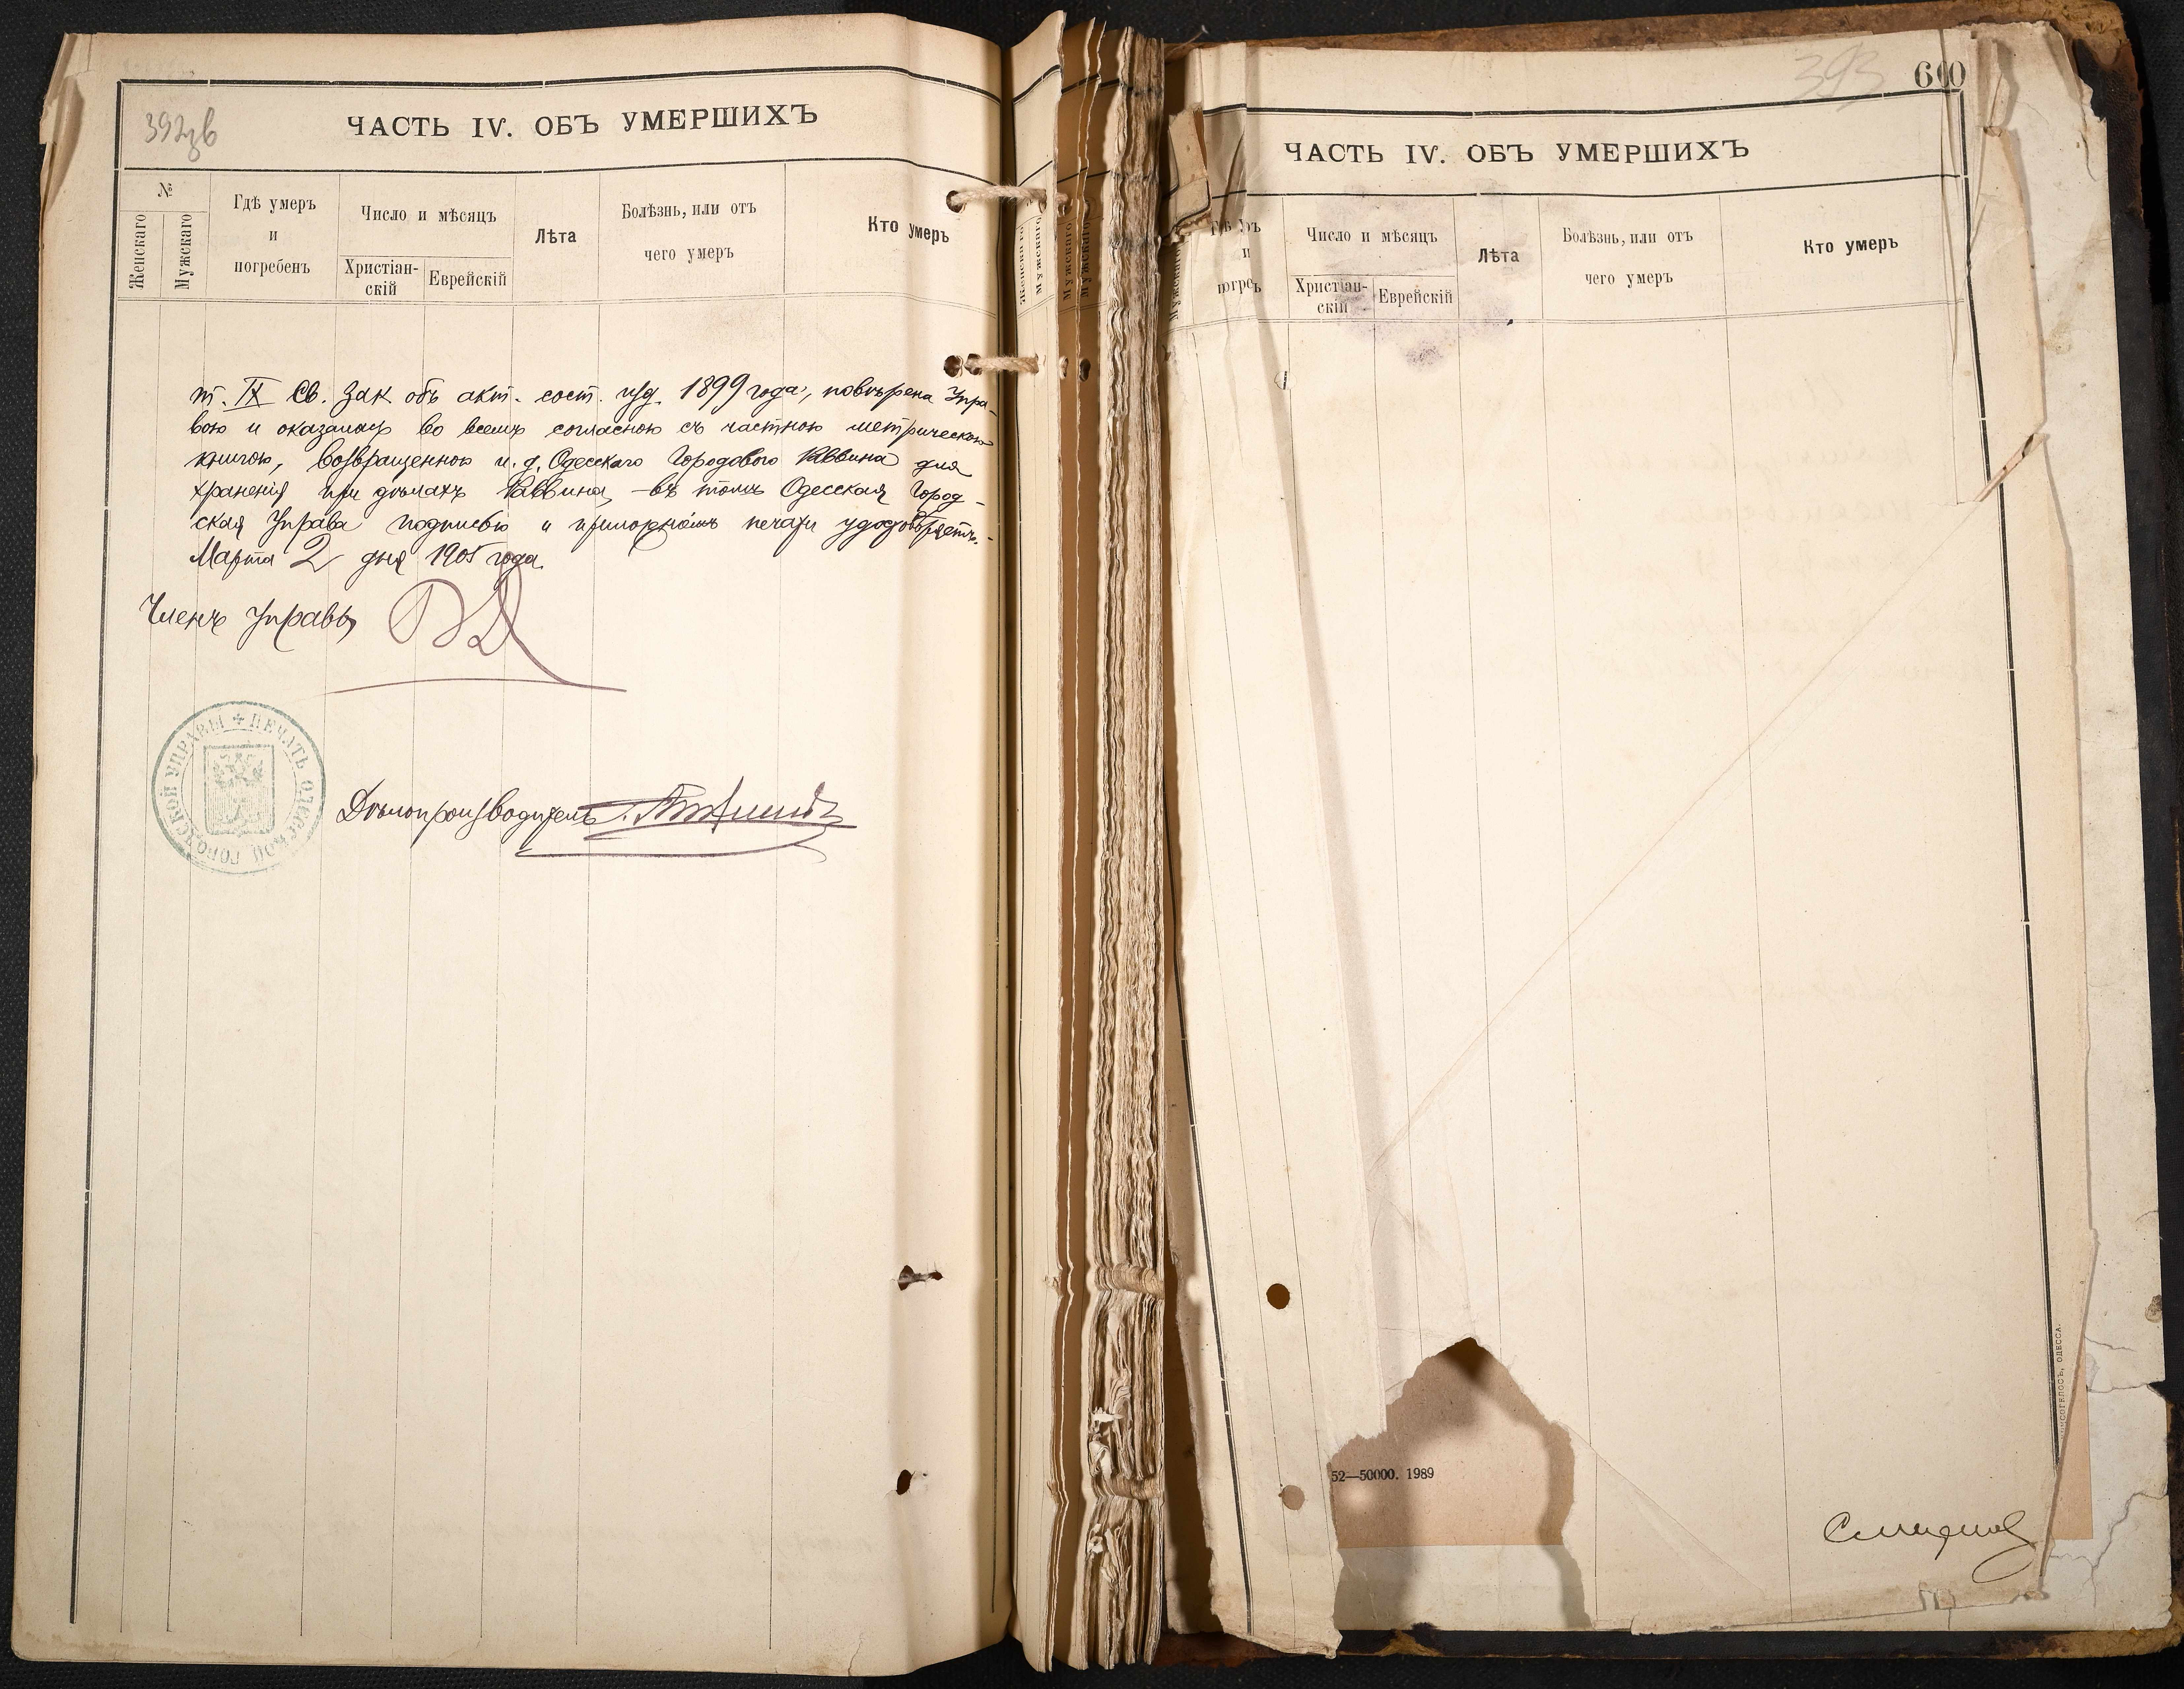 392 зв
ЧАСТЬ IV. ОБЪ УМЕРШИХЪ
№
Женскаго
Мужскаго
Гдѣ умеръ
и
погребенъ
Число и мѣсяцъ
Христіан-
скій
Еврейскій
Лѣта
Болѣзнь, или отъ
чего умеръ
Кто умеръ
т. IX Св. Зак. объ акт. сост. изд. 1899 года, повѣрена Упра-
вою и оказалась во всемъ согласною съ частною метрическою
книгою, возвращенною и. д. Одесскаго Городового Раввина для
храненія при дѣлахъ Раввина, – въ томъ Одесская Город-
ская Управа подписью и приложеніемъ печати удостовѣряетъ.
Марта 2 дня 1905 года.
Членъ Управы
ПЕЧАТЬ ОДЕССКОЙ ГОРОДСКОЙ УПРАВЫ
Дѣлопроизводитель
Женскаго
Мужскаго
Мужскаго
Мужскаго
393
600
ЧАСТЬ IV. ОБЪ УМЕРШИХЪ
Мужскаго
и
Число и мѣсяцъ
Христіан-
скій
Еврейскій
Лѣта
Болѣзнь, или отъ
чего умеръ
Кто умеръ
52—50000. 1989
ОДЕССА.
Смирнов